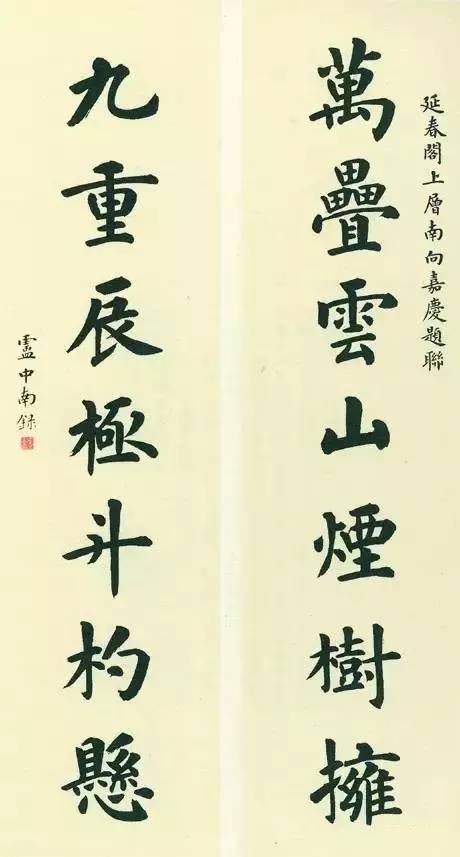 延春閣上層南向嘉慶題聯
萬疊雲山煙樹擁
九重辰極斗杓懸
盧中南錄